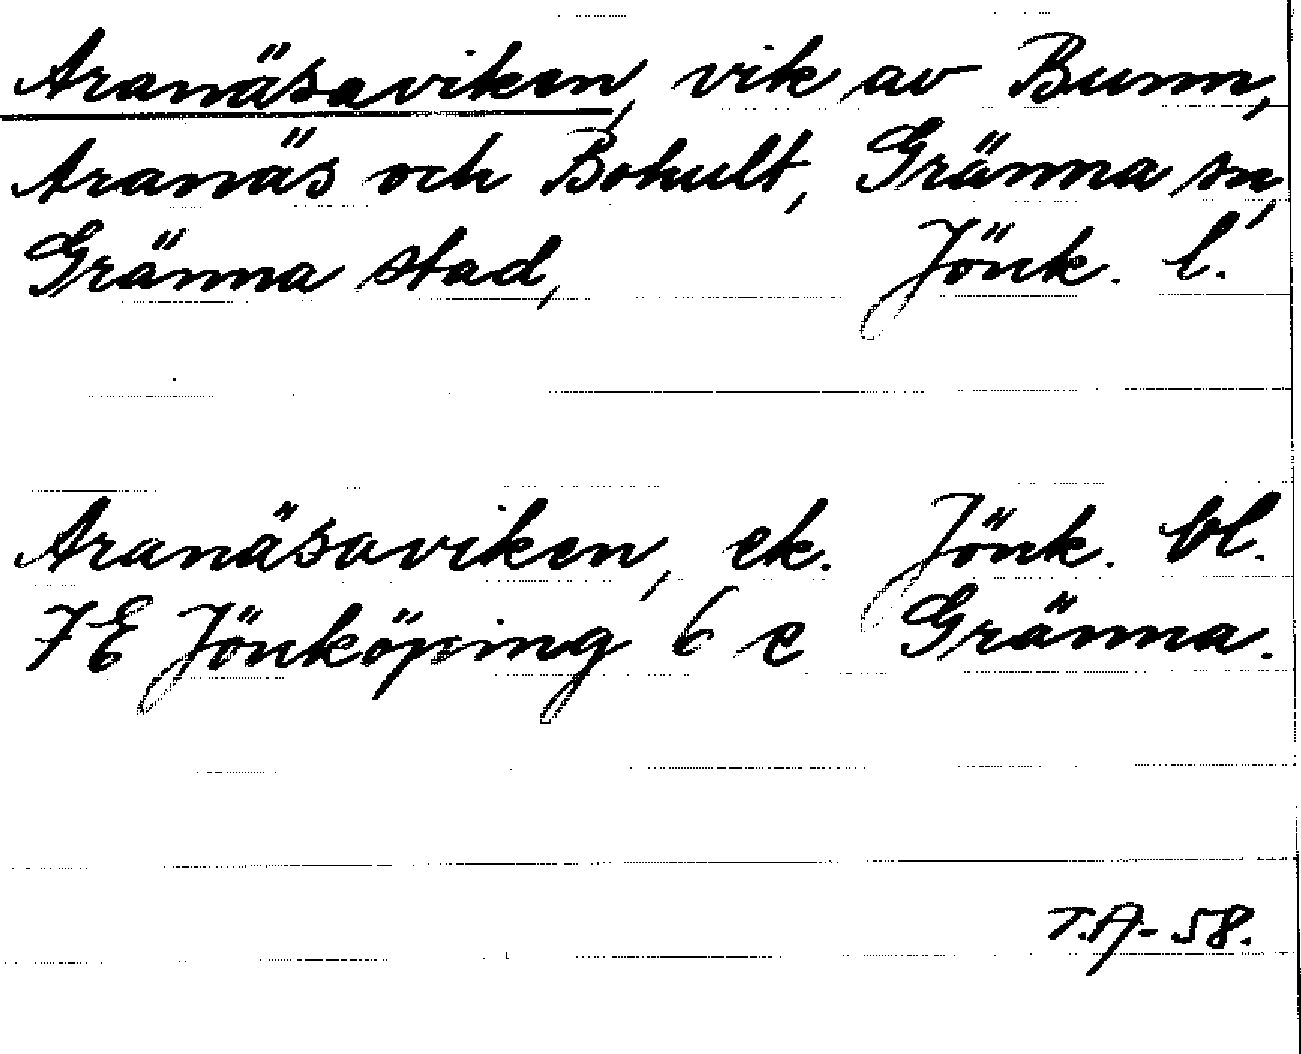 Aranäsaviken, vik av Bunn,
Aranäs och Bohult, Gränna sn,
Gränna stad, Jönk. l.
Aranäsaviken, ek. Jönk. bl.
7E Jönköping 6 e Gränna.
T.A-58.